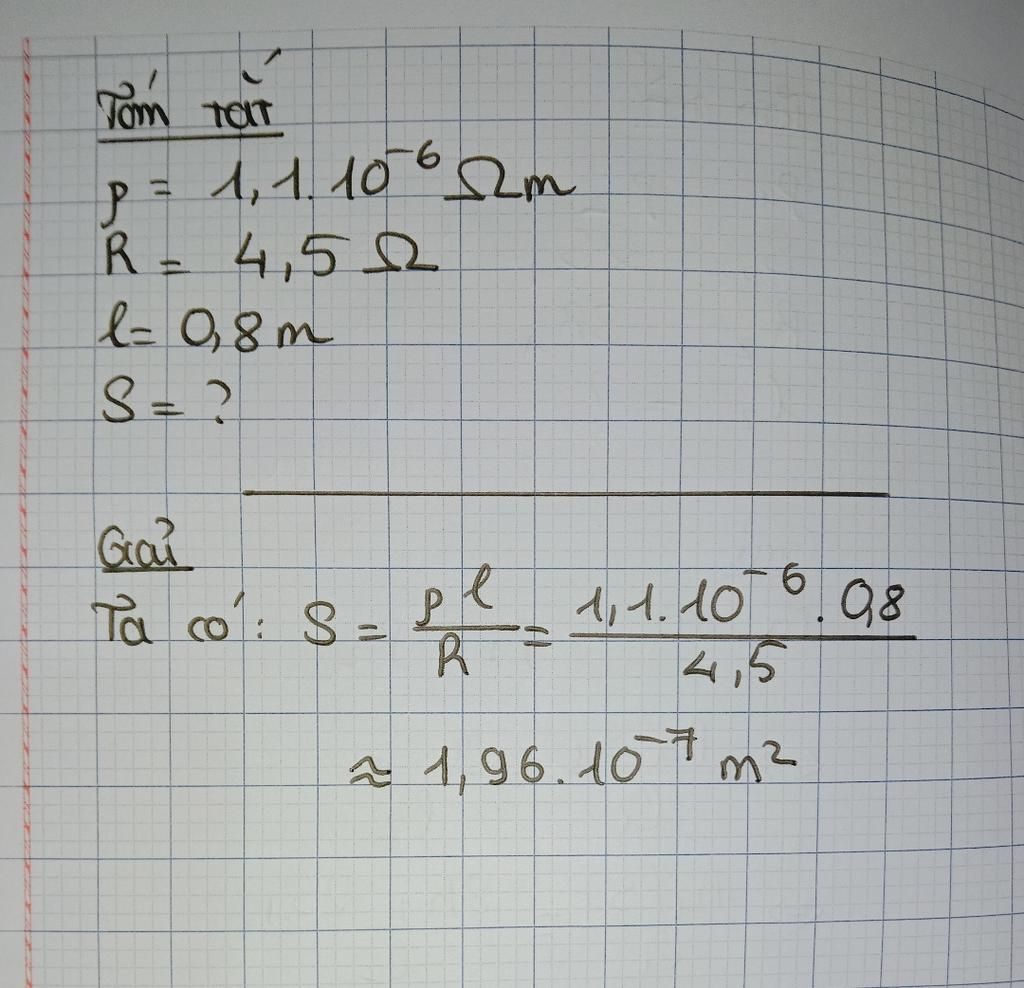 Tóm tắt
ρ = 1,1.10⁻⁶ Ωm
R = 4,5 Ω
l = 0,8 m
S = ?
Giải
Ta có: S = ρl/R = 1,1.10⁻⁶.0,8/4,5
≈ 1,96.10⁻⁷ m²